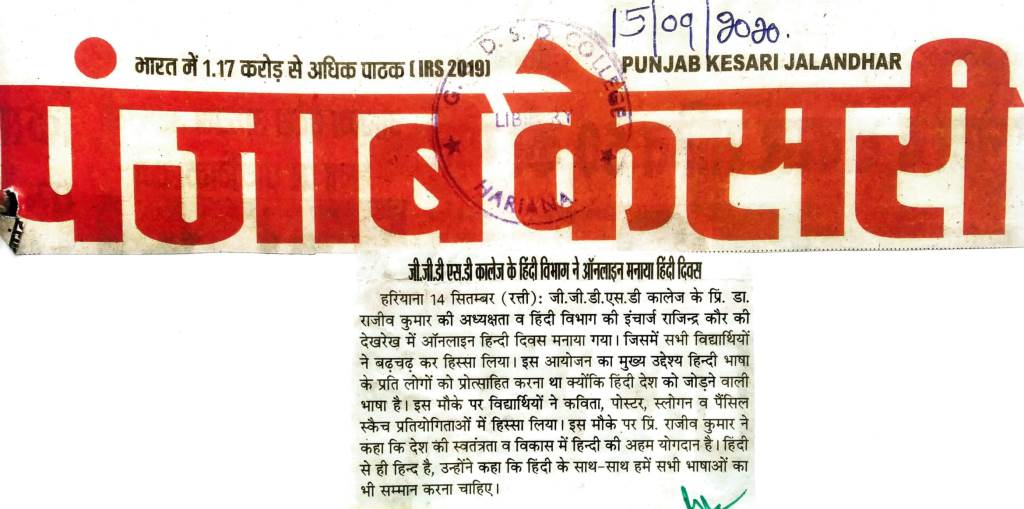 15/09/2020.
भारत में 1.17 करोड़ से अधिक पाठक (IRS 2019)
PUNJAB KESARI JALANDHAR
पंजाब केसरी
G. G. D. S. D. COLLEGE
HARIANA
जी.जी.डी एस.डी कालेज के हिंदी विभाग ने ऑनलाइन मनाया हिंदी दिवस
हरियाना 14 सितम्बर (रत्ती): जी.जी.डी.एस.डी कालेज के प्रिं. डा.
राजीव कुमार की अध्यक्षता व हिंदी विभाग की इंचार्ज राजिन्द्र कौर की
देखरेख में ऑनलाइन हिन्दी दिवस मनाया गया। जिसमें सभी विद्यार्थियों
ने बढ़चढ़ कर हिस्सा लिया। इस आयोजन का मुख्य उद्देश्य हिन्दी भाषा
के प्रति लोगों को प्रोत्साहित करना था क्योंकि हिंदी देश को जोड़ने वाली
भाषा है। इस मौके पर विद्यार्थियों ने कविता, पोस्टर, स्लोगन व पैंसिल
स्कैच प्रतियोगिताओं में हिस्सा लिया। इस मौके पर प्रिं. राजीव कुमार ने
कहा कि देश की स्वतंत्रता व विकास में हिन्दी की अहम योगदान है। हिंदी
से ही हिन्द है, उन्होंने कहा कि हिंदी के साथ-साथ हमें सभी भाषाओं का
भी सम्मान करना चाहिए।